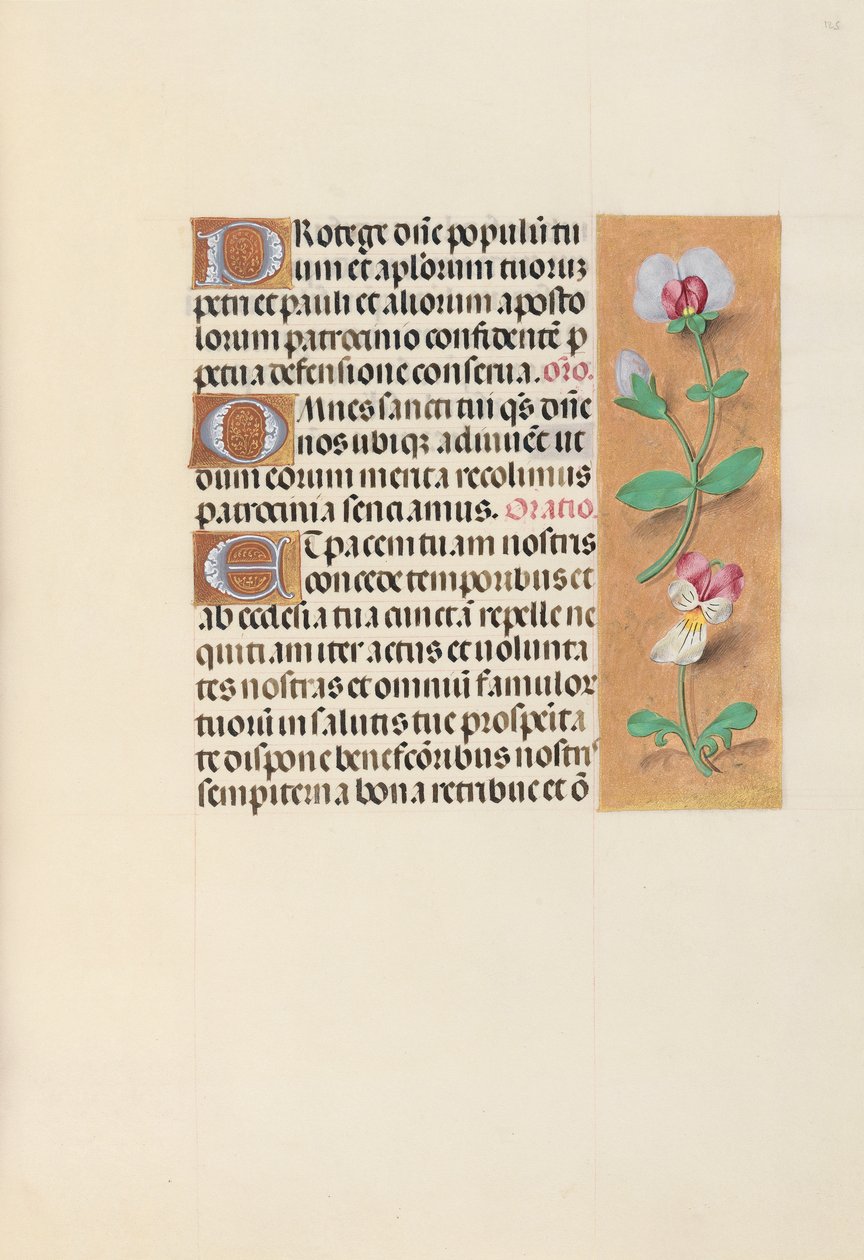 125
PRotege dñe populũ tu
um et aplorum tuorum
petri et pauli et aliorum aposto
lorum patrocinio confidentẽ p
petua defensione conserua. oro.
OMnes sancti tui qs dñe
nos ubiq; adiuuẽt ut
dum eorum merita recolimus
patrocinia senciamus. Oratio.
ET pacem tuam nostris
concede temporibus et
ab ecclesia tua cunctã repelle ne
quitiam iter actus et uolunta
tes nostras et omniũ famulor
tuorũ in salutis tue prosperita
te dispone benefcõribus nostris
sempiterna bona retribue et õ